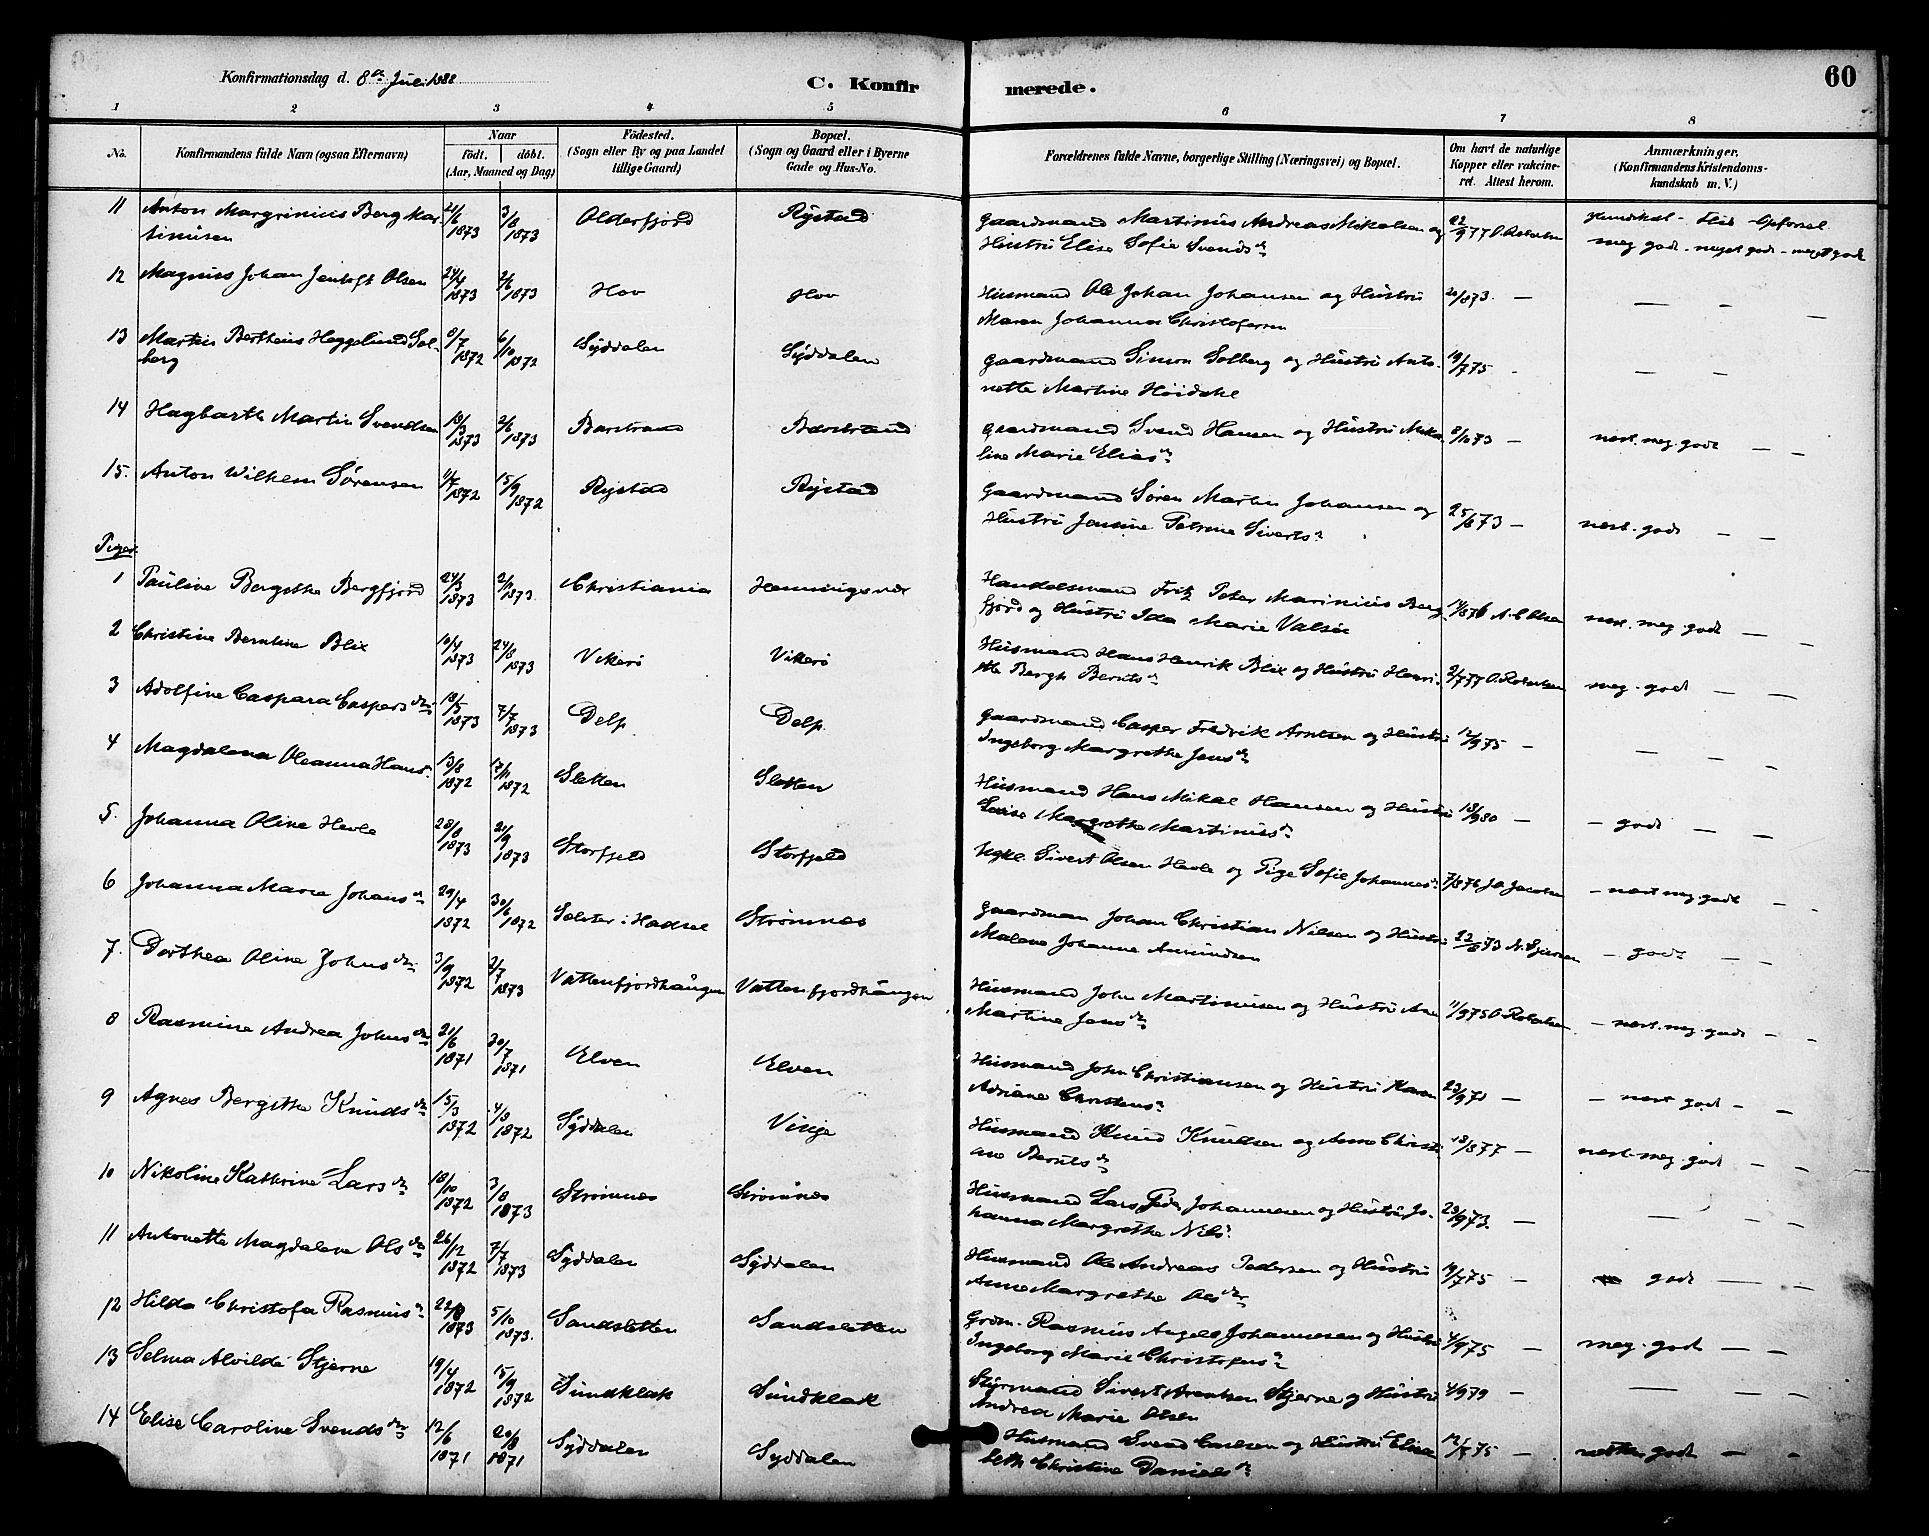 Konfirmationsdag d. 8de Juli 1888
C. Konfirmerede.
60
1 2 3 4 5 6 7 8
No.
Konfirmandens fulde Navn (ogsaa Efternavn)
Naar
födt. döbt.
(Aar, Maaned og Dag)
Födested.
(Sogn eller By og paa Landet
tillige Gaard)
Bopæl.
(Sogn og Gaard eller i Byerne
Gade og Hus-No.
Forældrenes fulde Navne, borgerlige Stilling (Næringsvei) og Bopæl.
Om havt de naturlige
Kopper eller vakcine-
ret. Attest herom.
Anmærkninger.
(Konfirmandens Kristendoms-
kundskab m. V.)
11 Anton Margrinius Berg Mar- 21/6 1873 3/8 1873 Olderfjord Rystad Gaardmand Martinus Andreas Mikalsen og 22/9 77 O. Robertsen Kundskab - Flid - Opførsel
tinusen Hustru Elise Sofie Svendsdr meg godt - meget godt - meget godt
12 Magnus Johan Jentoft Olsen 24/4 1873 2/6 1873 Hov Hov Husmand Ole Johan Johansen og Hustru 20/8 73 — — — —
Maren Johanna Christofersen
13 Martin Bertheus Heggelund Sol- 8/7 1872 6/10 1872 Syddalen Syddalen Gaardmand Simon Solberg og Hustru Anto- 19/7 75 - — —
berg nette Martine Höidahl
14 Hagbarth Martin Svendsen 18/3 1873 2/6 1873 Barstrand Barstrand Gaardmand Svend Hansen og Hustru Mika 8/10 73 — næst. meg. godt — —
line Marie Eliasdr
15. Anton Wilhelm Sørensen 4/7 1872 15/9 1872 Rystad Rystad Gaardmand Søren Martin Johansen og 25/6 73 — næst. godt — —
Hustru Jensine Petrine Sivertsdr
Piger
1 Pauline Bergithe Bergfjord 24/3 1873 1873 Christiania Henningsvær Handelsmand Fritz Peter Marinius Berg 14/8 76 A. C. Olsen næst. meg. godt — —
fjord og Hustru Ida Marie Valsöe
2 Christine Berntine Blix 10/4 1873 24/8 1873 Vikerö Vikerö Husmand Hans Henrik Blix og Hustru Henri- 2/7 77 O. Robertsen meg. godt — —
tte Bergh Berntsdr
3 Adolfine Caspara Caspersdtr 18/5 1873 7/7 1873 Delp Delp Gaardmand Casper Fredrik Arntsen og Hustru 12/9 75 — — — —
Ingeborg Margrethe Jensdr
4 Magdalena Oleanna Hans. 13/8 1872 17/11 1872 Sletten Sletten Husmand Hans Mikal Hansen og Hustru 18/9 80 — — godt — —
Lovise Margrethe Martinusdr
5. Johanna Oline Hevle 28/8 1873 21/9 1873 Storfjeld Storfjeld Ugkl. Sivert Olsen Hevle og Pige Sofie Johannesdr 7/8 76 J. A. Jacobsen — næst meg godt — -
6 Johanna Marie Johansdr 29/4 1872 30/6 1872 Selster i Hadsel Strömnes Gaardman Johan Christian Nilsen og Hustru 22/8 73 — godt — —
Malene Johanne Amundsen
7. Dorthea Oline Johnsdtr 3/9 1872 2/7 1873 Vattenfjordhången Vattenfjordhången Husmand John Martinusen og Hustru Ane 11/9 75 O. Robertsen — næst. meg. godt — -
Martine Jensdtr
8 Rasmine Andrea Johnsdtr 21/6 1871 30/7 1871 Elven Elven Husmand John Christiansen og Hustru Karen 23/9 71 — — næst godt - —
Adriane Christensdr
9 Agnes Bergithe Knudsdtr 15/3 1872 4/8 1872 Syddalen Vinje Husmand Knud Knudsen og Anne Christi 18/8 77 — næst. meg. godt — —
ane Berntsdr
10 Nikoline Kathrine Larsdtr 18/10 1872 3/8 1873 Strömnes Strömnes Husmand Lars Peder Johannesen og Hustru Jo- 23/9 73. — — — —
hanna Margrethe Nilsdr
11 Antonette Magdalene Olsdtr 26/12 1872 7/7 1873 Syddalen Syddalen Husmand Ole Andreas Pedersen og Hustru 19/7 75 — godt — —
Anne Margrethe Olsdtr
12 Hilda Christofa Rasmusdr 22/8 1873 5/10 1873. Sandsletten Sandsletten Grdm. Rasmus Angel Johannesen og Hustru 4/9 75 — meg. godt — —
Ingeborg Marie Christofersdr
13 Selma Alvilde Stjerne 19/4 1872 15/9 1872 Sundklak Sundklak Styrmand Sivert Arentsen Stjerne og Hustru 4/9 79 — — — —
Andrea Marie Olsen
14 Elise Caroline Svendsdtr 12/6 1871 20/8 1871 Syddalen Syddalen Husmand Svend Carlsen og Hustru Elisa 12/7 75 — næsten godt — -
beth Christine Danielsdr